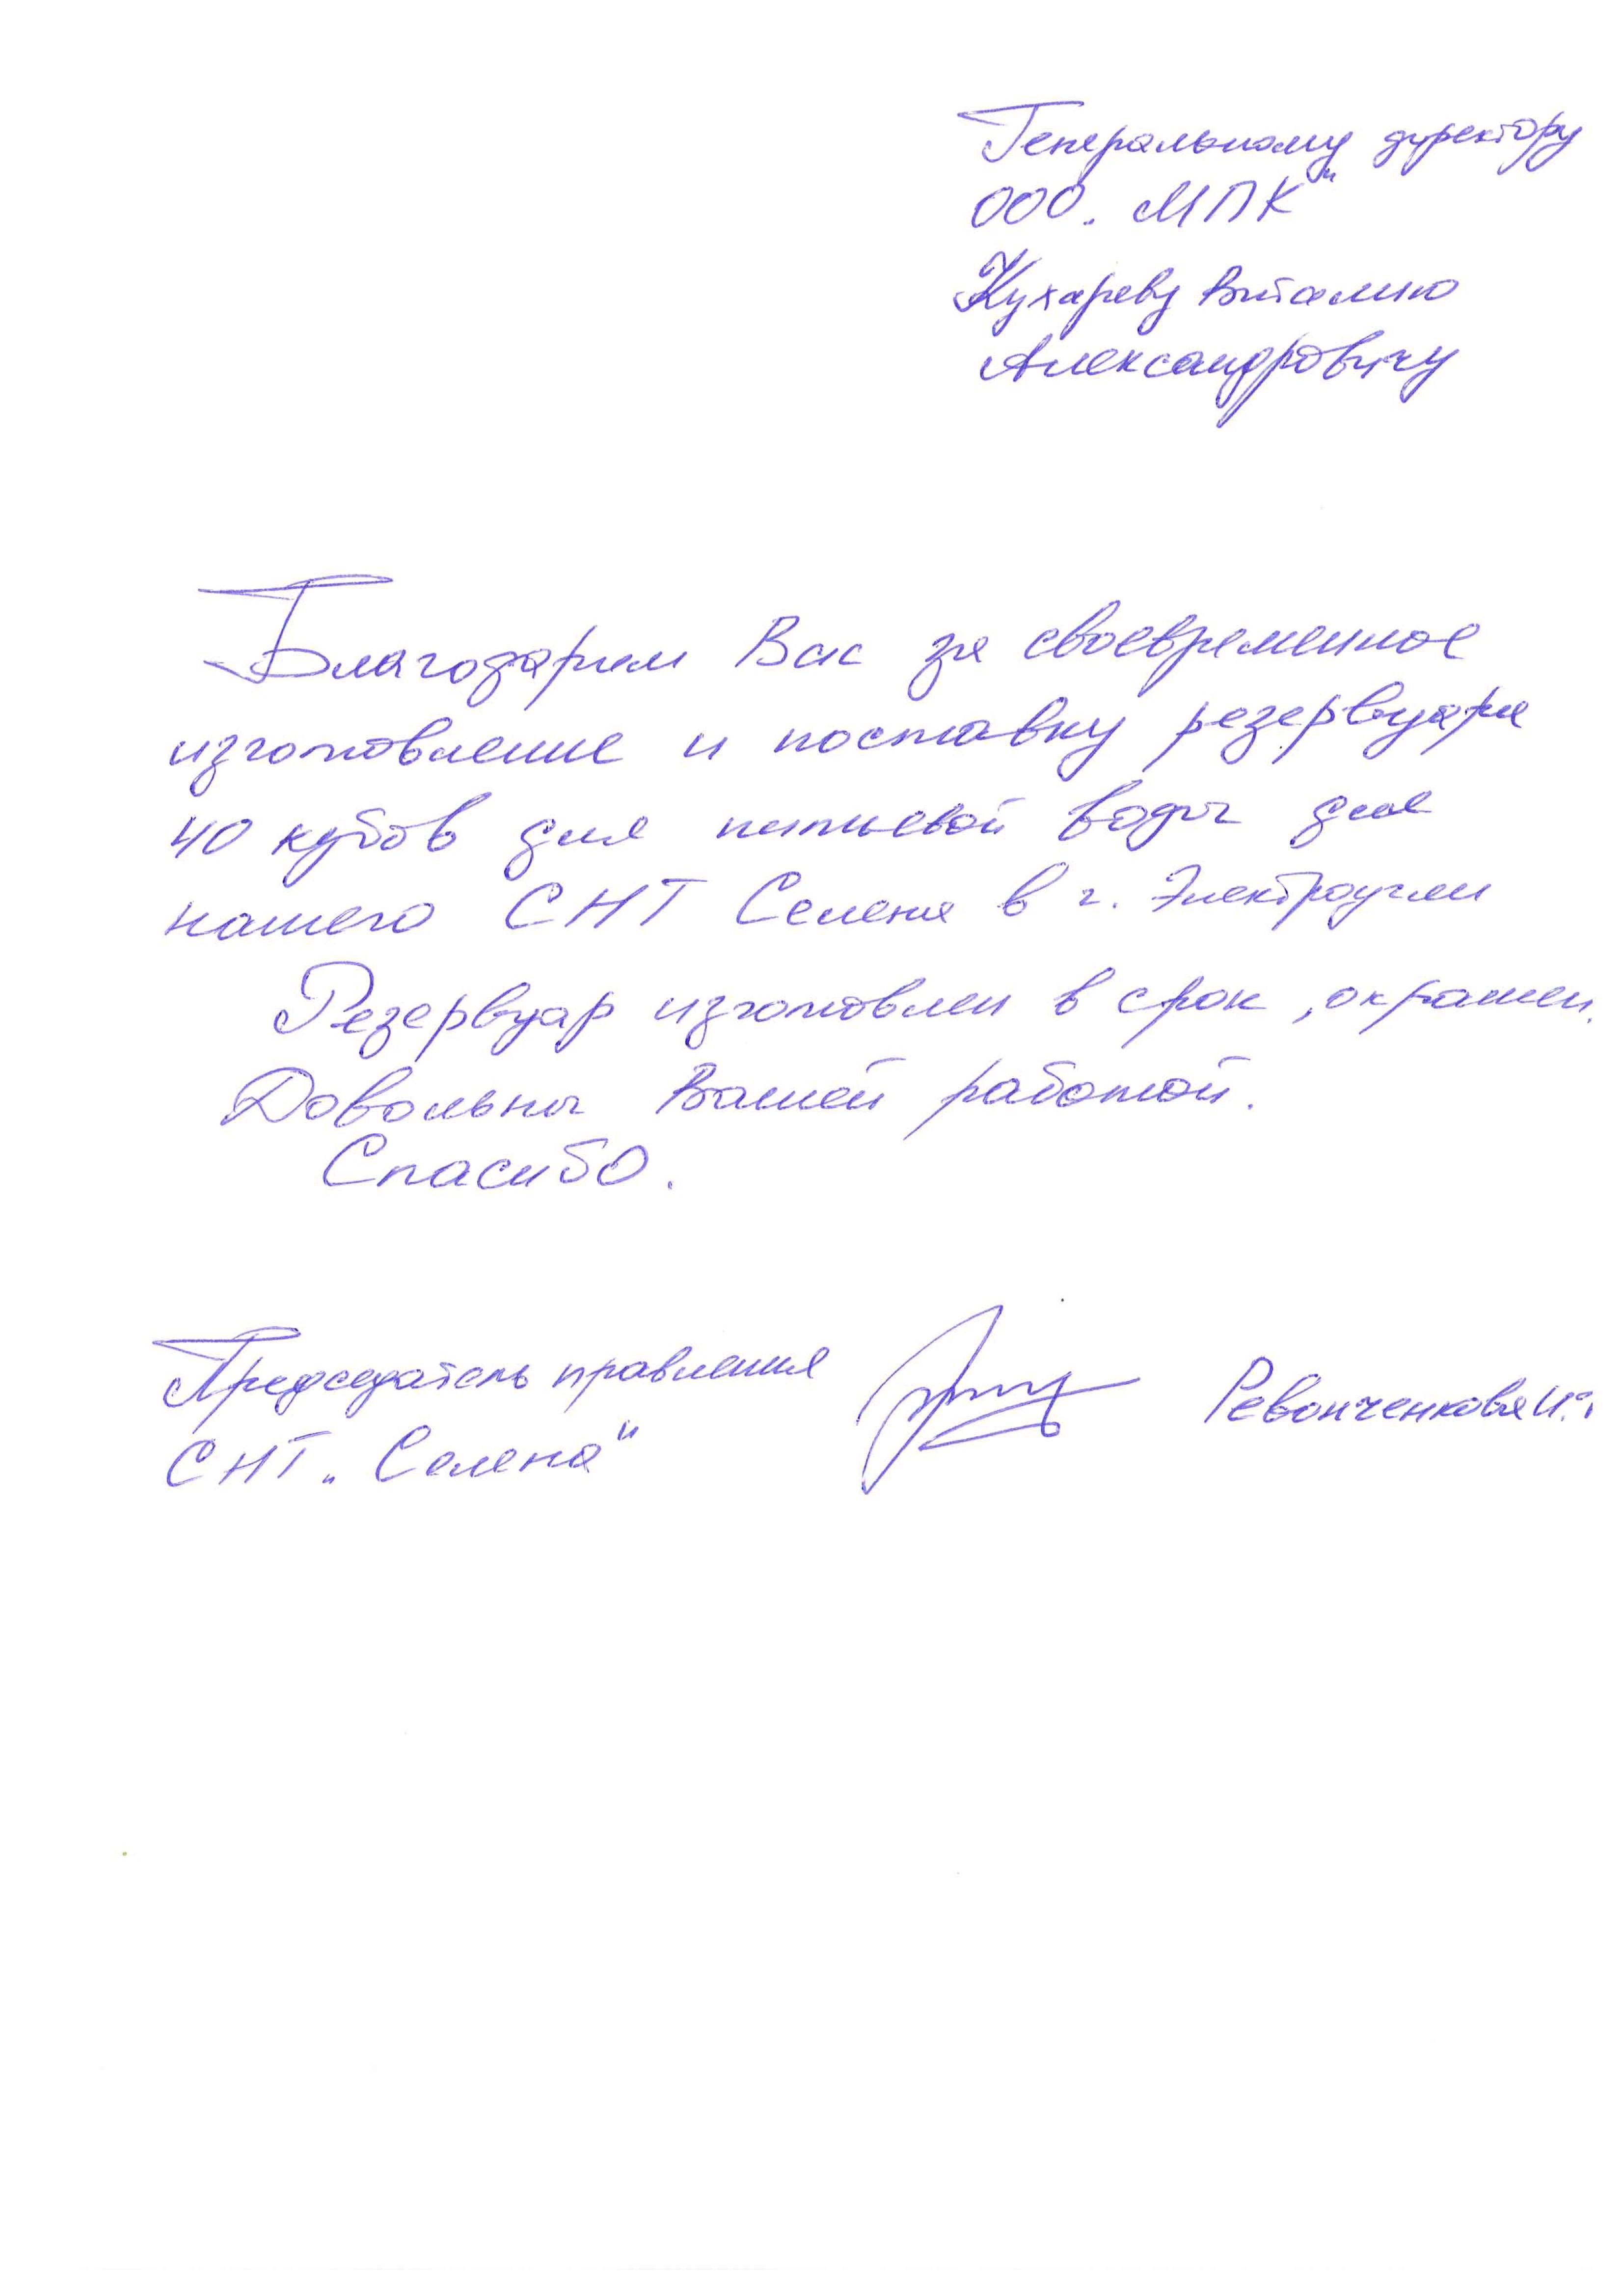 Генеральному директору
ООО „МПК"
Кухареву Виталию
Александровичу
Благодарим Вас за своевременное
изготовление и поставку резервуара
40 кубов для питьевой воды для
нашего СНТ Селена в г. Электроугли
Резервуар изготовлен в срок, окрашен.
Довольны Вашей работой.
Спасибо.
Председатель правления
СНТ „Селена"